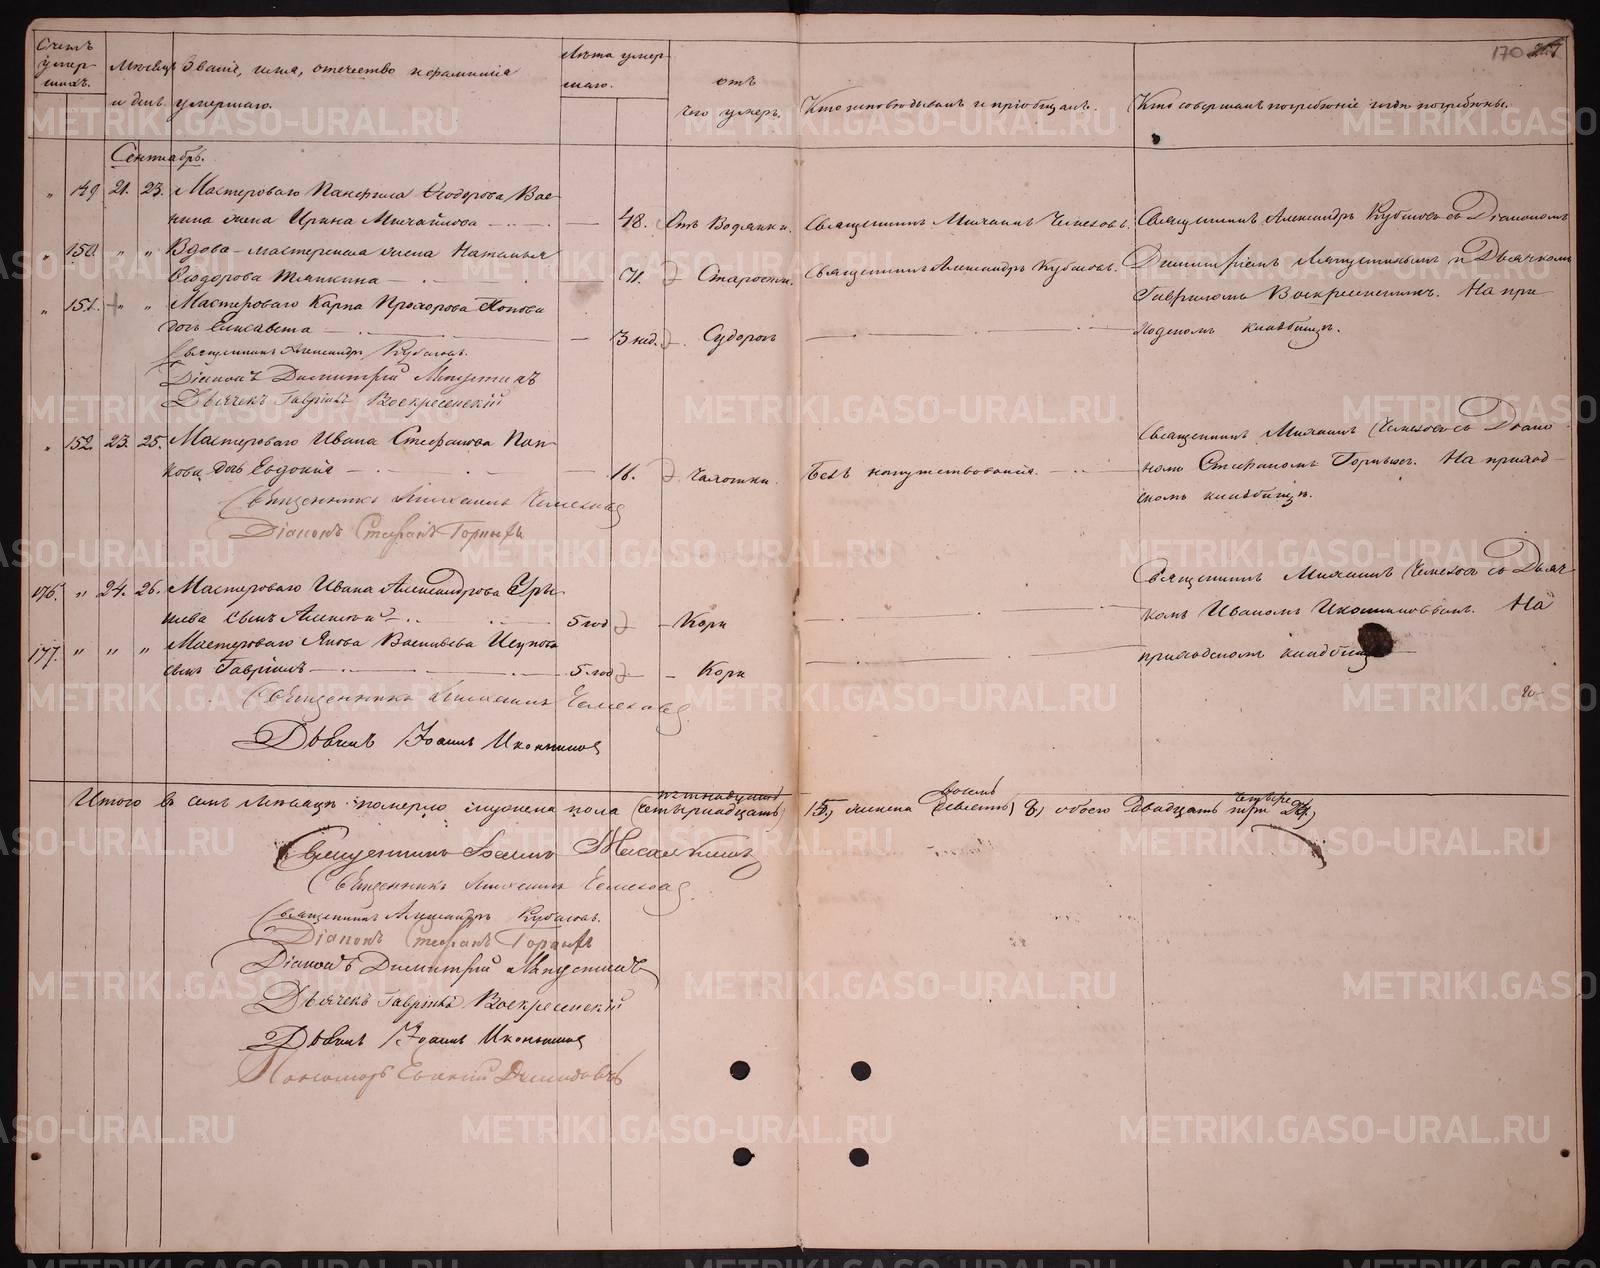 170
Счетъ умер-
шихъ.
Мѣсяцъ
и день
Званіе, имя, отечество и фамилія
умершаго.
Лѣта умер-
шаго.
отъ
чего умеръ.
Кто исповѣдывалъ и пріобщалъ.
Кто совершалъ погребеніе и гдѣ погребены.
Сентябрь.
" 149 21. 23. Мастероваго Панфила Ѳеодорова
жена Ирина Михайлова — 48. Отъ Водянки. Священникъ Михаилъ Чемезовъ. Священникъ Александръ Кубасовъ съ Діакономъ
" 150. " " Вдова мастерская жена Наталья
Ѳеодорова Тяпкина — 71. Старости. Священникъ Александръ Кубасовъ. Димитріемъ и Дьячкомъ
" 151. " " Мастероваго Карпа Прохорова Попова
дочь Елисавета — 3 нед. Судорогъ
Гавриломъ Воскресенскимъ. На при-
ходскомъ кладбищѣ.
Священникъ Александръ Кубасовъ.
Діаконъ Димитрій
Дьячекъ Гавріилъ Воскресенскій
" 152. 23. 25. Мастероваго Ивана Стефанова Поп-
кова дочь Евдокія — 16. Чахотки. Безъ напутствованія.
Священникъ Михаилъ Чемезовъ съ Діако-
номъ Стефаномъ Горныхъ. На приход-
скомъ кладбищѣ.
Священникъ Михаилъ Чемезовъ
Діаконъ Стефанъ Горныхъ
176. " 24. 26. Мастероваго Ивана Александрова
сынъ Алексѣй — 5 год — Кори
177. " " " Мастероваго Якова Васильева
сынъ Гавріилъ — 5 год — Кори
Священникъ Михаилъ Чемезовъ съ Дьяч-
комъ Иваномъ Иконниковымъ. На
приходскомъ кладбищѣ
Священникъ Михаилъ Чемезовъ
Дьячекъ Іоаннъ Иконниковъ
Итого въ семъ мѣсяцѣ померло мужеска пола (четырнадцать) пятнадцать 15, женска (девять) восемь 8, обоего двадцать три четыре
Священникъ Іоаннъ
Священникъ Михаилъ Чемезовъ
Священникъ Александръ Кубасовъ.
Діаконъ Стефанъ Горныхъ
Діаконъ Димитрій
Дьячекъ Гавріилъ Воскресенскій
Дьячекъ Іоаннъ Иконниковъ
Пономарь Евгеній Демидовъ
METRIKI.GASO-URAL.RU